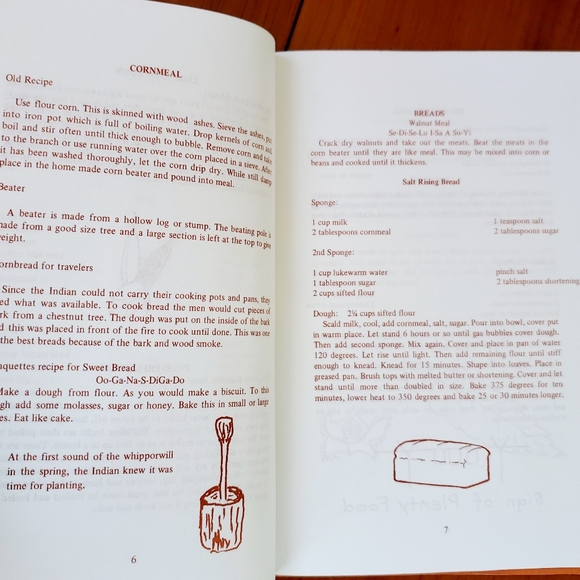 CORNMEAL
Old Recipe
Use flour corn. This is skinned with wood ashes. Sieve the ashes, put
into iron pot which is full of boiling water. Drop kernels of corn and
boil and stir often until thick enough to bubble. Remove corn and take
to the branch or use running water over the corn placed in a sieve. After
it has been washed thoroughly, let the corn drip dry. While still damp
place in the home made corn beater and pound into meal.
Beater
A beater is made from a hollow log or stump. The beating pole is
made from a good size tree and a large section is left at the top to give
weight.
ornbread for travelers
Since the Indian could not carry their cooking pots and pans, they
ed what was available. To cook bread the men would cut pieces of
rk from a chestnut tree. The dough was put on the inside of the bark
d this was placed in front of the fire to cook until done. This was one
the best breads because of the bark and wood smoke.
quettes recipe for Sweet Bread
Oo-Ga-Na-S-DiGa-Do
Make a dough from flour. As you would make a biscuit. To this
gh add some molasses, sugar or honey. Bake this in small or large
es. Eat like cake.
At the first sound of the whipporwill
in the spring, the Indian knew it was
time for planting.
6
BREADS
Walnut Meal
Se-Di-Se-Lu I-Sa A Su-Yi
Crack dry walnuts and take out the meats. Beat the meats in the
corn beater until they are like meal. This may be mixed into corn or
beans and cooked until it thickens.
Salt Rising Bread
Sponge:
1 cup milk 1 teaspoon salt
2 tablespoons cornmeal 2 tablespoons sugar
2nd Sponge:
1 cup lukewarm water pinch salt
1 tablespoon sugar 2 tablespoons shortening
2 cups sifted flour
Dough: 2¼ cups sifted flour
Scald milk, cool, add cornmeal, salt, sugar. Pour into bowl, cover put
in warm place. Let stand 6 hours or so until gas bubbles cover dough.
Then add second sponge. Mix again. Cover and place in pan of water
120 degrees. Let rise until light. Then add remaining flour until stiff
enough to knead. Knead for 15 minutes. Shape into loaves. Place in
greased pan. Brush tops with melted butter or shortening. Cover and let
stand until more than doubled in size. Bake 375 degrees for ten
minutes, lower heat to 350 degrees and bake 25 or 30 minutes longer.
7